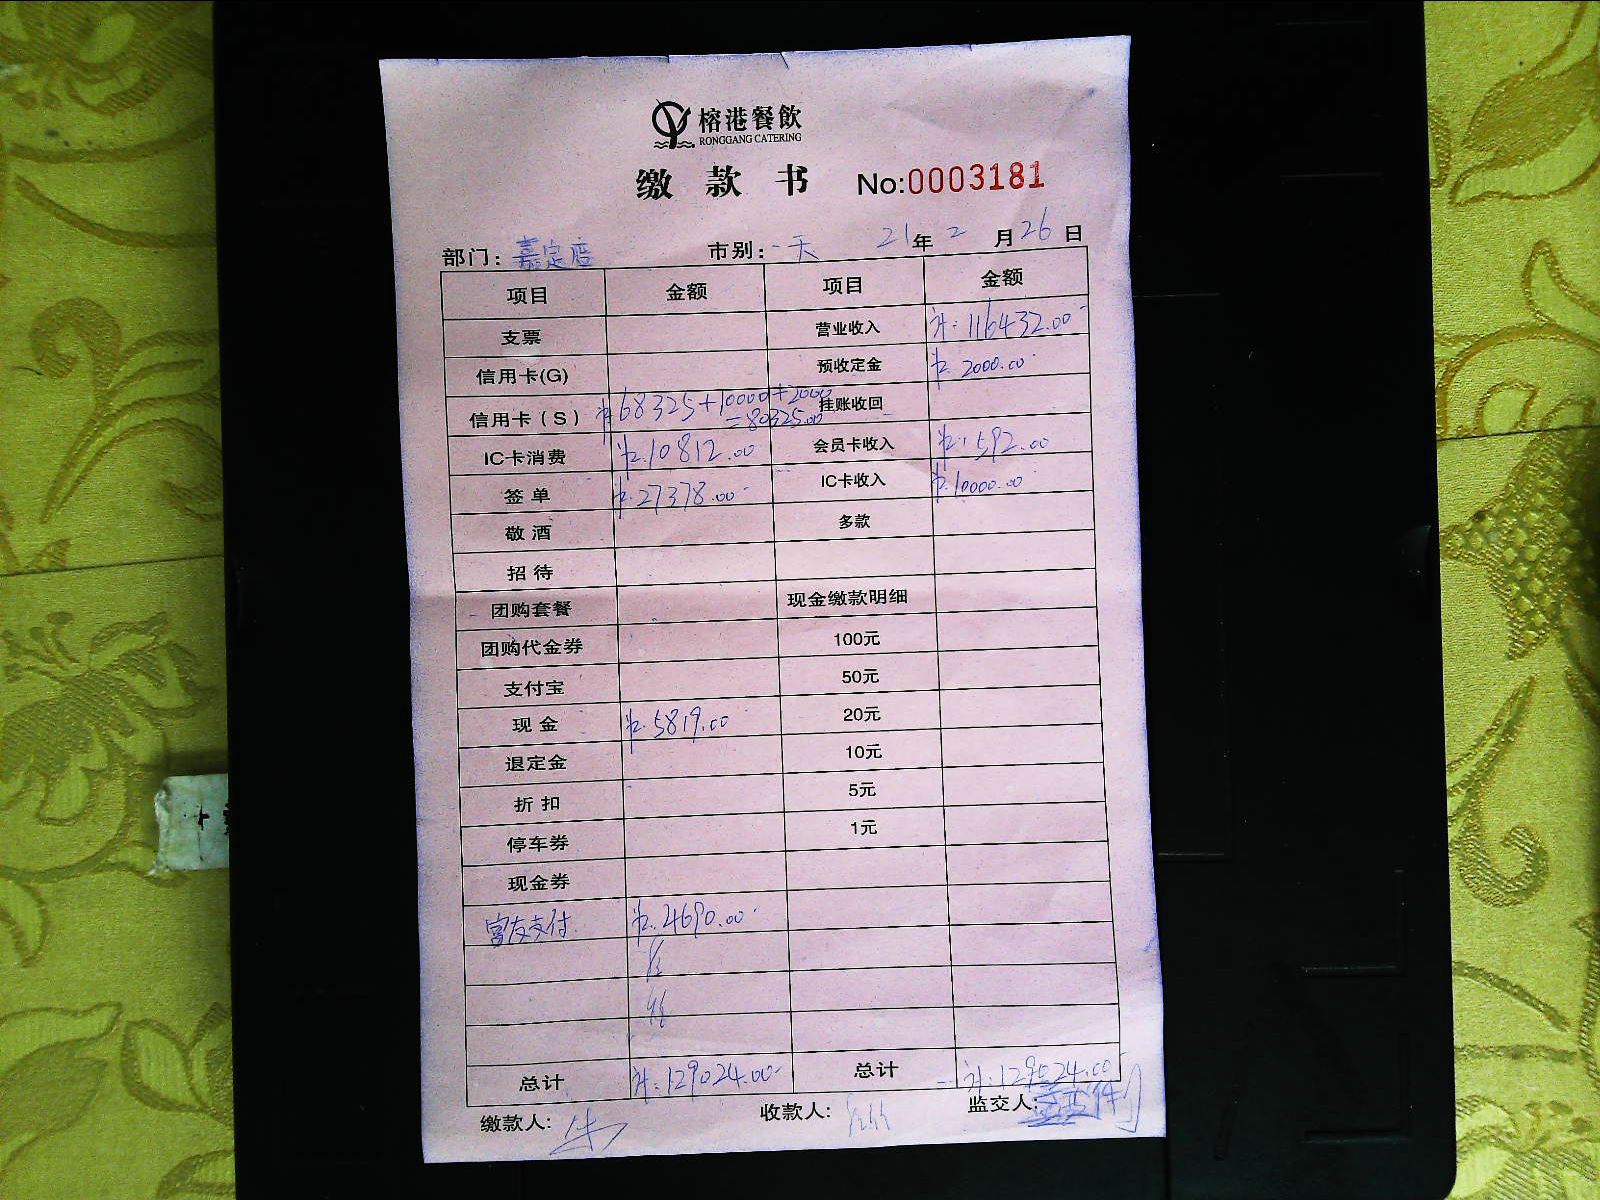 榕港餐飲
RONGGANG CATERING
缴款书 No:0003181
部门：嘉定店 市别：一天 21年2月26日
项目 金额 项目 金额
支票 营业收入 计:116432.00
信用卡(G) 预收定金 2000.00
信用卡（S） 68325+10000+2000 =80325.00 挂账收回
IC卡消费 10812.00 会员卡收入 592.00
签单 27378.00 IC卡收入 10000.00
敬酒 多款
招待
团购套餐 现金缴款明细
团购代金券 100元
支付宝 50元
现金 5819.00 20元
退定金 10元
折扣 5元
停车券 1元
现金券
富友支付 4690.00
总计 计:129024.00 总计 计:129024.00
缴款人: 收款人: 监交人: